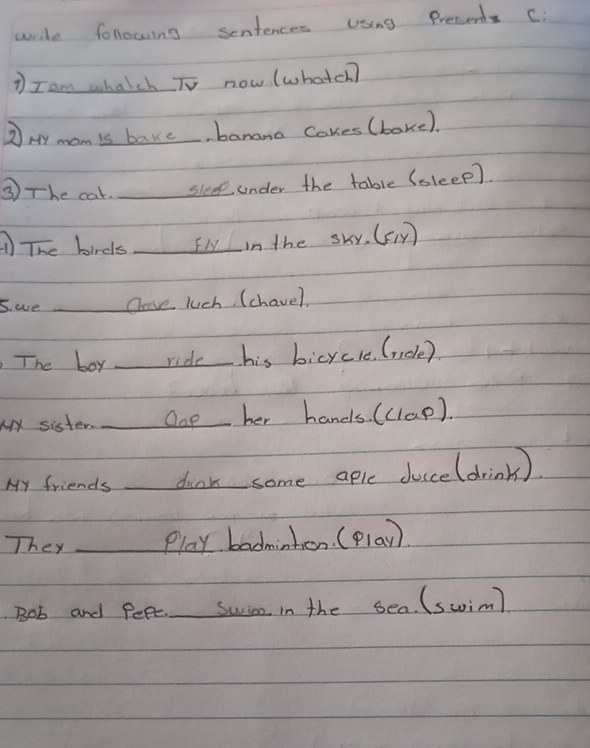 write following sentences using Presents C:
1) I am whatch TV now (whatch)
2) My mom is bake banana Cakes (bake).
3) The cat. sleep under the table (sleep).
4) The birds Fly in the sky. (Fly)
5. we have luch. (chave).
The boy ride his bicycle. (ride).
My sister. Clap her hands. (Clap).
My friends drink some aple Juice (drink).
They Play badmintion. (Play)
Bob and Pepe. Swim in the sea. (swim).